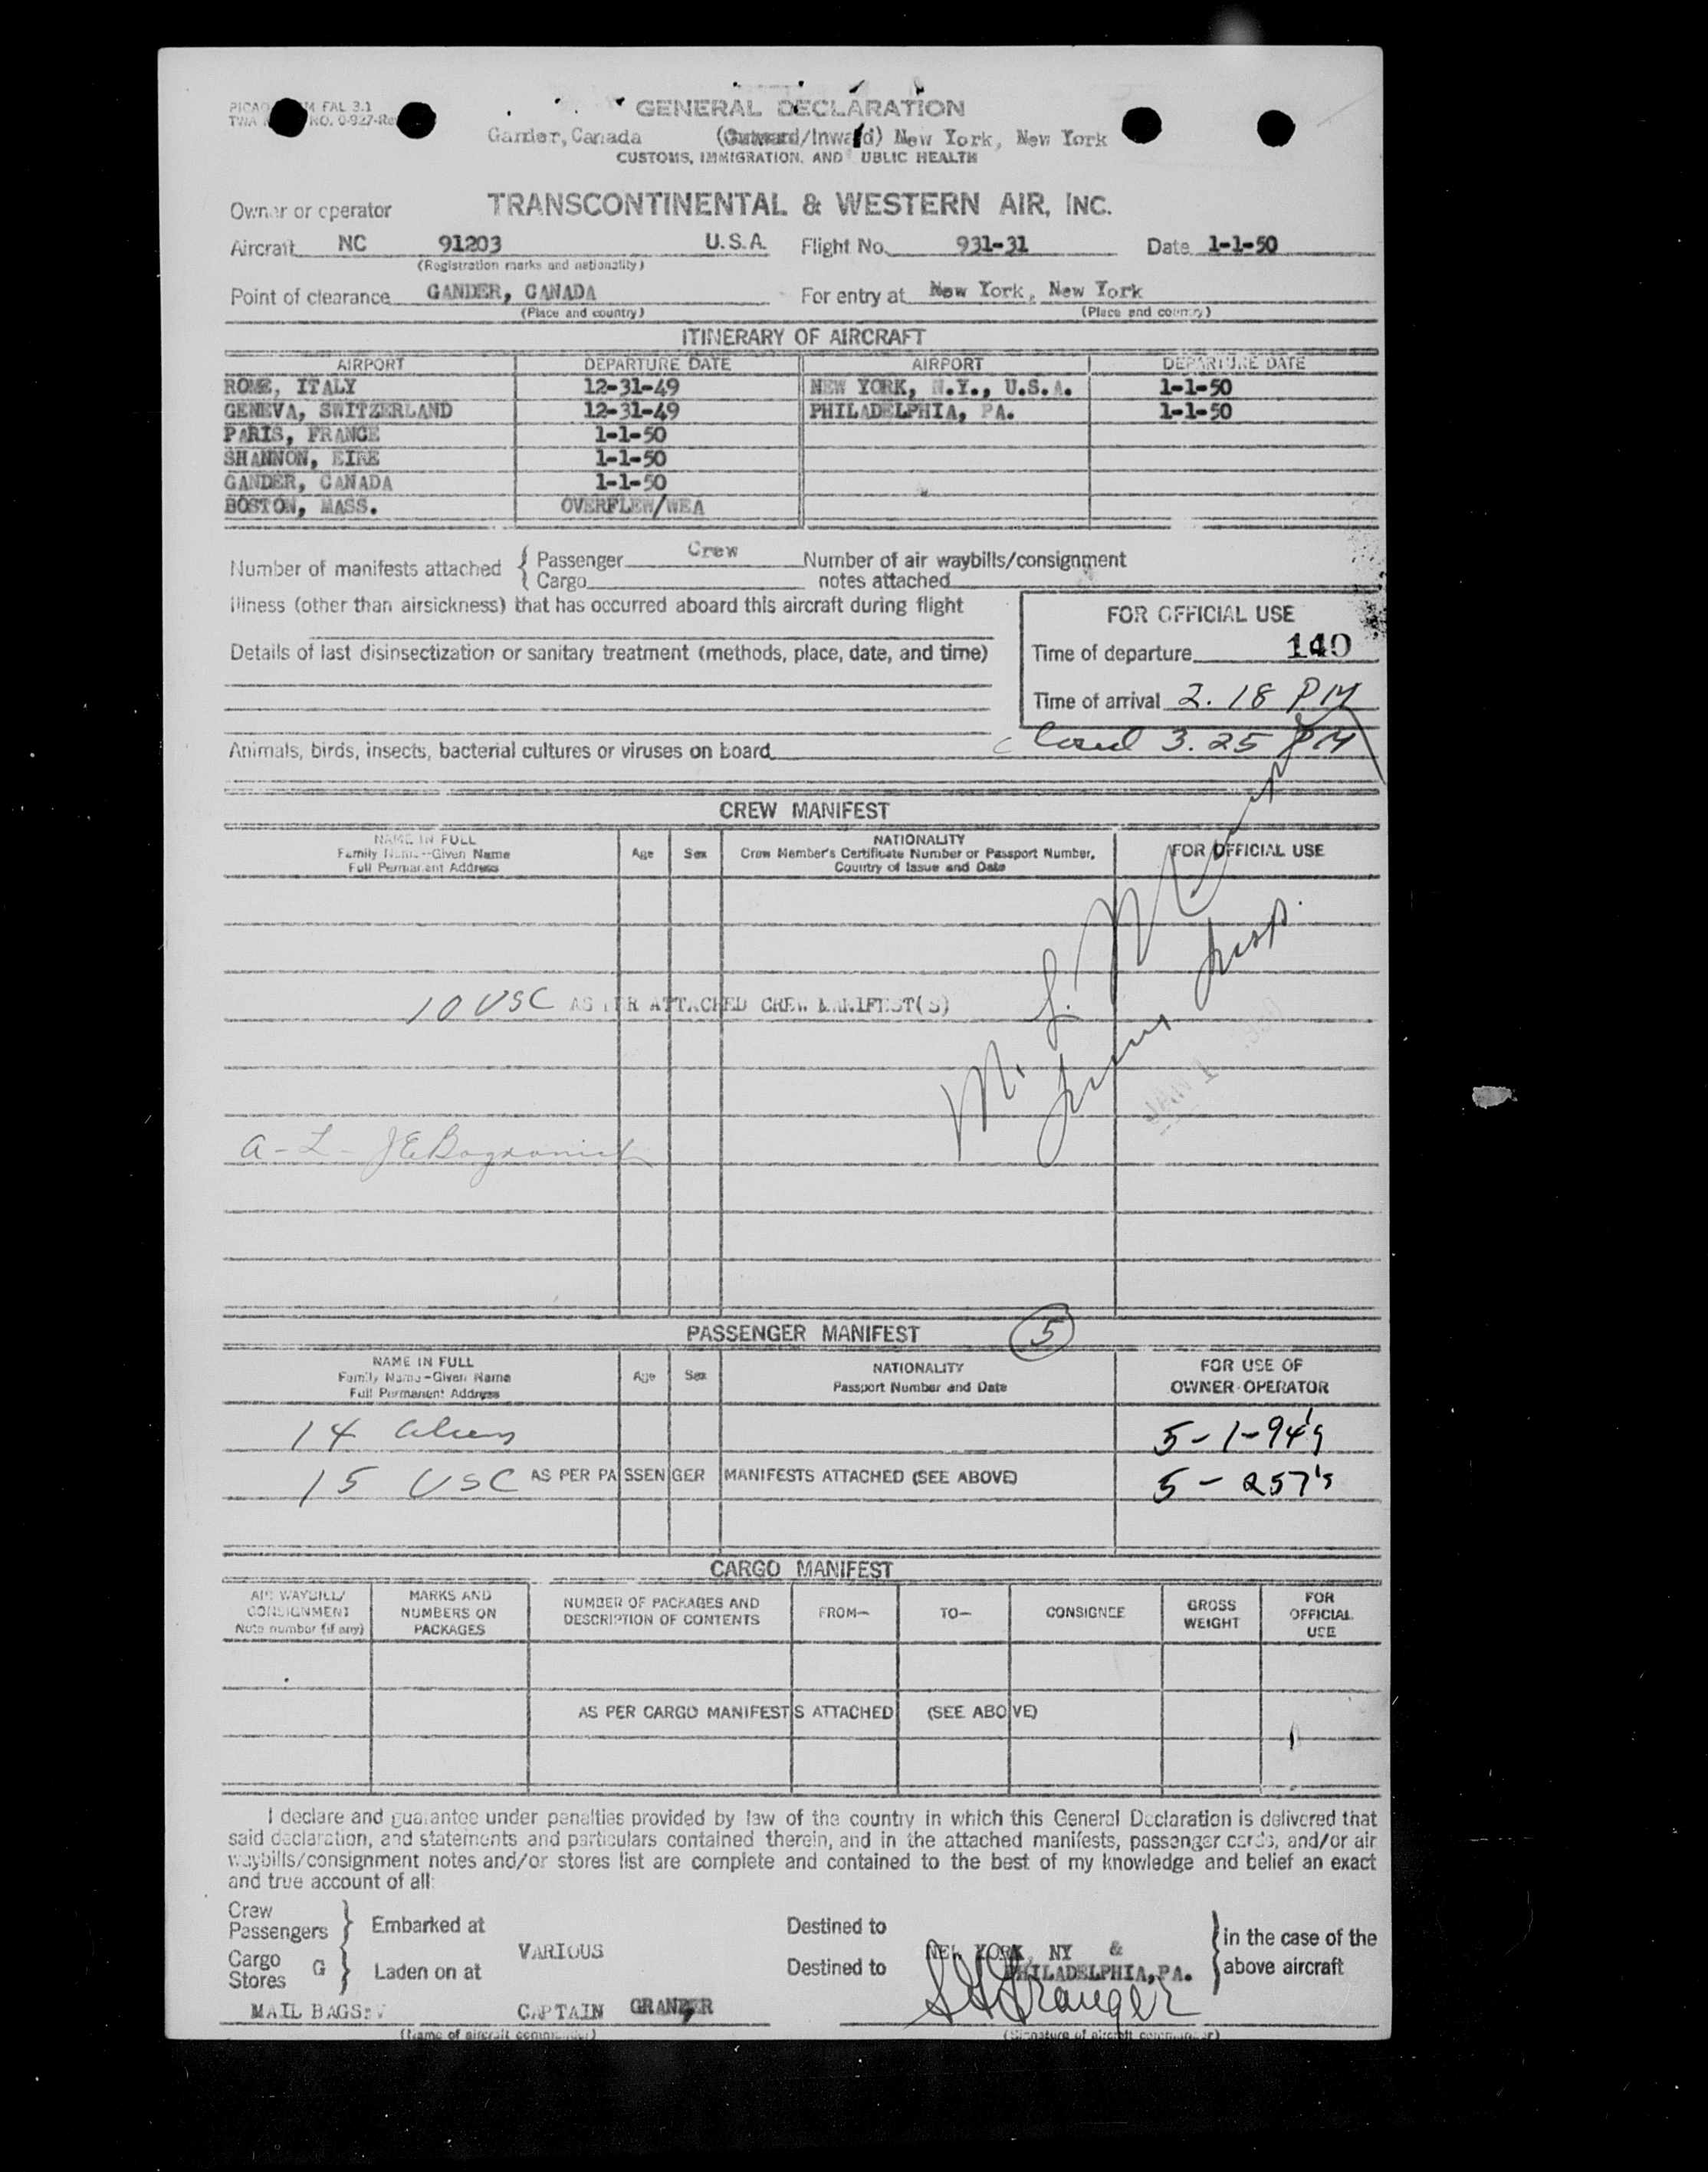 GENERAL DECLARATION
Gander, Canada (Outward/Inward) New York, New York
CUSTOMS, IMMIGRATION, AND PUBLIC HEALTH
Owner or operator TRANSCONTINENTAL & WESTERN AIR, INC.
Aircraft NC 91203 U.S.A. Flight No. 931-31 Date 1-1-50
(Registration marks and nationality)
Point of clearance GANDER, CANADA For entry at New York, New York
(Place and country) (Place and country)
ITINERARY OF AIRCRAFT
AIRPORT DEPARTURE DATE AIRPORT DEPARTURE DATE
ROME, ITALY 12-31-49 NEW YORK, N.Y., U.S.A. 1-1-50
GENEVA, SWITZERLAND 12-31-49 PHILADELPHIA, PA. 1-1-50
PARIS, FRANCE 1-1-50
SHANNON, EIRE 1-1-50
GANDER, CANADA 1-1-50
BOSTON, MASS. OVERFLEW/WEA
Number of manifests attached { Passenger Crew Number of air waybills/consignment
Cargo notes attached
Illness (other than airsickness) that has occurred aboard this aircraft during flight
FOR OFFICIAL USE
Details of last disinsectization or sanitary treatment (methods, place, date, and time)
Time of departure 140
Time of arrival 2.18 PM
Closed 3.25 PM
Animals, birds, insects, bacterial cultures or viruses on board
CREW MANIFEST
NAME IN FULL
Family Name-Given Name
Full Permanent Address
Age Sex
NATIONALITY
Crew Member's Certificate Number or Passport Number,
Country of Issue and Date
FOR OFFICIAL USE
10 USC AS PER ATTACHED CREW MANIFEST(S)
JAN 1
PASSENGER MANIFEST 5
NAME IN FULL
Family Name-Given Name
Full Permanent Address
Age Sex
NATIONALITY
Passport Number and Date
FOR USE OF
OWNER-OPERATOR
14 aliens 5-1-94's
15 USC AS PER PASSENGER MANIFESTS ATTACHED (SEE ABOVE) 5-257's
CARGO MANIFEST
AIR WAYBILL/
CONSIGNMENT
Note number (if any)
MARKS AND
NUMBERS ON
PACKAGES
NUMBER OF PACKAGES AND
DESCRIPTION OF CONTENTS
FROM— TO— CONSIGNEE
GROSS
WEIGHT
FOR
OFFICIAL
USE
AS PER CARGO MANIFESTS ATTACHED (SEE ABOVE)
I declare and guarantee under penalties provided by law of the country in which this General Declaration is delivered that
said declaration, and statements and particulars contained therein, and in the attached manifests, passenger cards, and/or air
waybills/consignment notes and/or stores list are complete and contained to the best of my knowledge and belief an exact
and true account of all:
Crew
Passengers } Embarked at Destined to
VARIOUS NEW YORK, NY &
Cargo
Stores G } Laden on at Destined to PHILADELPHIA, PA.
} in the case of the
above aircraft
MAIL BAGS: CAPTAIN GRANGER
(Name of aircraft commander) (Signature of aircraft commander)